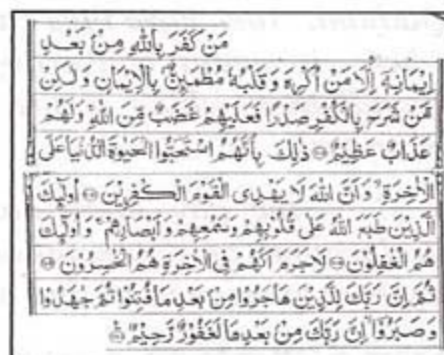 مَنْ كَفَرَ بِاللّٰهِ مِنْۢ بَعْدِ
اِيْمَانِهٖۤ اِلَّا مَنْ اُكْرِهَ وَقَلْبُهٗ مُطْمَئِنٌّۢ بِالْاِيْمَانِ وَلٰكِنْ
مَّنْ شَرَحَ بِالْكُفْرِ صَدْرًا فَعَلَيْهِمْ غَضَبٌ مِّنَ اللّٰهِ ۚ وَلَهُمْ
عَذَابٌ عَظِيْمٌ ۝ ذٰلِكَ بِاَنَّهُمُ اسْتَحَبُّوا الْحَيٰوةَ الدُّنْيَا عَلَى
الْاٰخِرَةِ ۙ وَاَنَّ اللّٰهَ لَا يَهْدِى الْقَوْمَ الْكٰفِرِيْنَ ۝ اُولٰٓئِكَ
الَّذِيْنَ طَبَعَ اللّٰهُ عَلٰى قُلُوْبِهِمْ وَسَمْعِهِمْ وَاَبْصَارِهِمْ ۚ وَاُولٰٓئِكَ
هُمُ الْغٰفِلُوْنَ ۝ لَا جَرَمَ اَنَّهُمْ فِى الْاٰخِرَةِ هُمُ الْخٰسِرُوْنَ ۝
ثُمَّ اِنَّ رَبَّكَ لِلَّذِيْنَ هَاجَرُوْا مِنْۢ بَعْدِ مَا فُتِنُوْا ثُمَّ جٰهَدُوْا
وَصَبَرُوْۤا اِنَّ رَبَّكَ مِنْۢ بَعْدِهَا لَغَفُوْرٌ رَّحِيْمٌ ۝